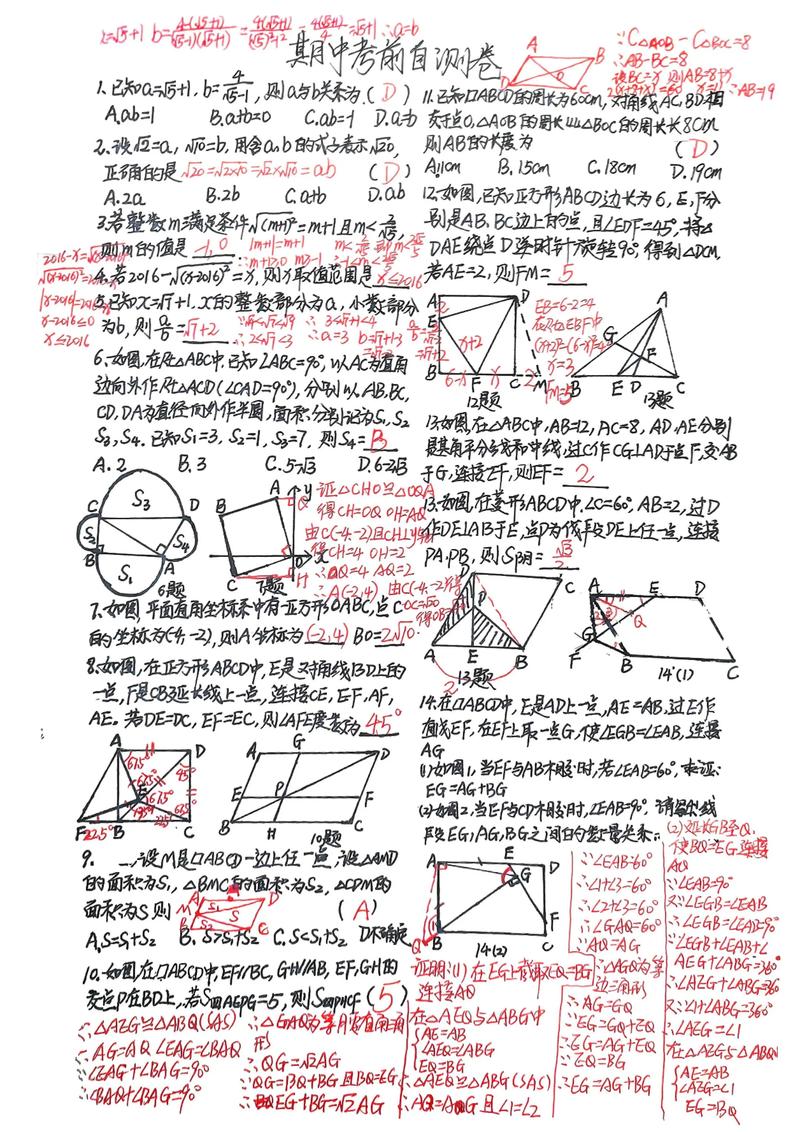 x=√5+1 b=4(√5+1)/(√5-1)(√5+1)=4(√5+1)/(√5)²-1²=4(√5+1)/4=√5+1 ∴a=b
期中考前自测卷
1.已知a=√5+1,b=4/√5-1,则a与b关系为(D)
A.ab=1 B.a+b=0 C.ab=-1 D.a=b
2.设√2=a,√10=b,用含a,b的式子表示√20,
正确的是 √20=√2×10=√2×√10=ab (D)
A.2a B.2b C.a+b D.ab
3.若整数m满足条件√(m+1)²=m+1且m<2/√5,
则m的值是 -1,0
|m+1|=m+1
∴m+1≥0 m≥-1
4.若2016-√(x-2016)²=x,则x取值范围是 x≤2016
x-2016≤0
x≤2016
5.已知x=√7+1,x的整数部分为a,小数部分
为b,则a/b=√7+2
∵√4<√7<√9
∴2<√7<3
∴3<√7+1<4
∴a=3
6.如图,在Rt△ABC中,已知∠ABC=90°,以AC为直角
边向外作Rt△ACD(∠CAD=90°),分别以AB,BC,
CD,DA为直径向外作半圆,面积分别记为S₁,S₂
S₃,S₄.已知S₁=3,S₂=1,S₃=7,则S₄=B
A.2 B.3 C.5-√3 D.6-2√3
S₃
C D
S₂ S₄
B A
S₁
6题
A y
Q
B
O x
C H
7题
证△CHO≌△OQA
得CH=OQ OH=AQ
由C(-4,-2)且CH⊥x轴
得CH=4 OH=2
∴OQ=4 AQ=2
∴A(-2,4)
7.如图,平面直角坐标系中有一正方形OABC,点C
的坐标为(-4,-2),则A坐标为(-2,4) BO=2√10
8.如图,在正方形ABCD中,E是对角线BD上的
一点,F是CB延长线上一点,连接CE,EF,AF,
AE.若DE=DC,EF=EC,则∠AFE度数为45°
A D
E
F B C
22.5°
A G D
E P F
B H C
10题
9. 一,设M是□ABCD一边上任一点,设△AMD
的面积为S₁,△BMC的面积为S₂,△CDM的
面积为S则 (A)
A D
M S₁ S
B S₂ C
A.S=S₁+S₂ B.S>S₁+S₂ C.S<S₁+S₂ D不确定
10.如图,在□ABCD中,EF//BC,GH//AB,EF,GH的
交点P在BD上,若S四AEPG=5,则S四PHCF(5)
A B
O
D C
∵C△AOB-C△BOC=8
∴AB-BC=8
设BC=x,则AB=8+x
2(x+8+x)=60 x=11 ∴AB=19
11.已知□ABCD的周长为60cm,对角线AC,BD相
交于点O,△AOB的周长比△BOC的周长长8cm
则AB的长度为 (D)
A.11cm B.15cm C.18cm D.19cm
12.如图,已知正方形ABCD边长为6,E,F分
别是AB,BC边上的点,且∠EDF=45°,将△
DAE绕点D逆时针旋转90°,得到△DCM,
若AE=2,则FM=5
A D
2
E
x+2
B 6-x F x C 2 M
12题
EB=6-2=4
在Rt△EBF中
x=3
FM=5
A
G
F
B E D C
13题
13.如图,在△ABC中,AB=12,AC=8,AD,AE分别
是其角平分线和中线,过C作CG⊥AD于点F,交AB
于G,连接EF,则EF=2
13.如图,在菱形ABCD中,∠C=60°,AB=2,过D
作DE⊥AB于E,点P为线段DE上任一点,连接
PA,PB,则S阴=√3/2
D C
P
A E B
2
13题
A E D
Q
G
F B C
14(1)
14.在□ABCD中,E是AD上一点,AE=AB,过E作
直线EF,在EF上取一点G,使∠EGB=∠EAB,连接
AG
(1)如图1,当EF与AB相交时,若∠EAB=60°,求证:
EG=AG+BG
(2)如图2,当EF与CD相交时,∠EAB=90°,请写出线
段EG,AG,BG之间的数量关系:
A E D
G
F
B C
Q
14(2)
证明:(1)在EG上截取EQ=BG
连接AQ
在△AEQ与△ABG中
{AE=AB
∠AEQ=∠ABG
EQ=BG
∴△AEQ≌△ABG(SAS)
∴AQ=AG 且∠1=∠2
∵∠EAB=60°
∴∠1+∠3=60°
∴∠2+∠3=60°
∴∠GAQ=60°
∵AQ=AG
∴△AGQ为等
边三角形
∴AG=GQ
∵EG=GQ+EQ
∴EG=AG+EQ
∵EQ=BG
∴EG=AG+BG
(2)延长GB至Q,
使BQ=EG,连接
AQ
∵∠EAB=90°
又∵∠EGB=∠EAB
∴∠EGB=∠EAB=90°
∵∠EGB+∠EAB+∠
AEG+∠ABG=360°
∴∠AEG+∠ABG=180°
又∵∠1+∠ABG=180°
∴∠AEG=∠1
在△AEG与△ABQ中
{AE=AB
∠AEG=∠1
EG=BQ
∴△AEG≌△ABQ(SAS)
∴AG=AQ ∠EAG=∠BAQ
∵∠EAG+∠BAG=90°
∴∠BAQ+∠BAG=90°
∴△GAQ为等腰直角三角
形
∴QG=√2AG
∵QG=BQ+BG且BQ=EG
∴EG+BG=√2AG